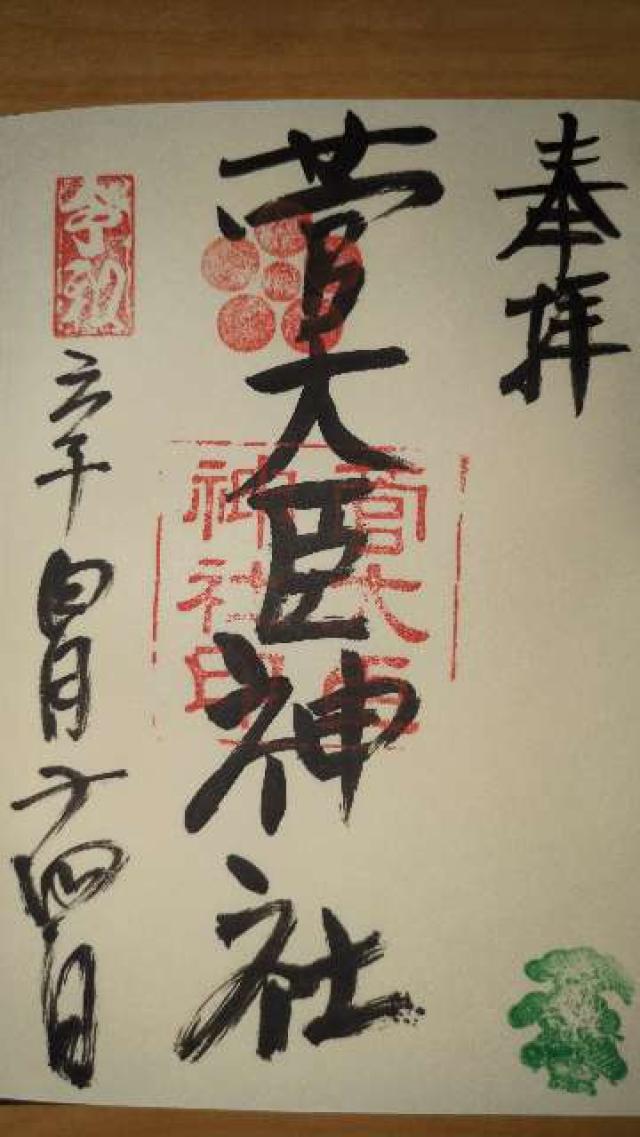 奉拝
菅大臣神社
菅大臣
神社印
令和
六年四月十四日